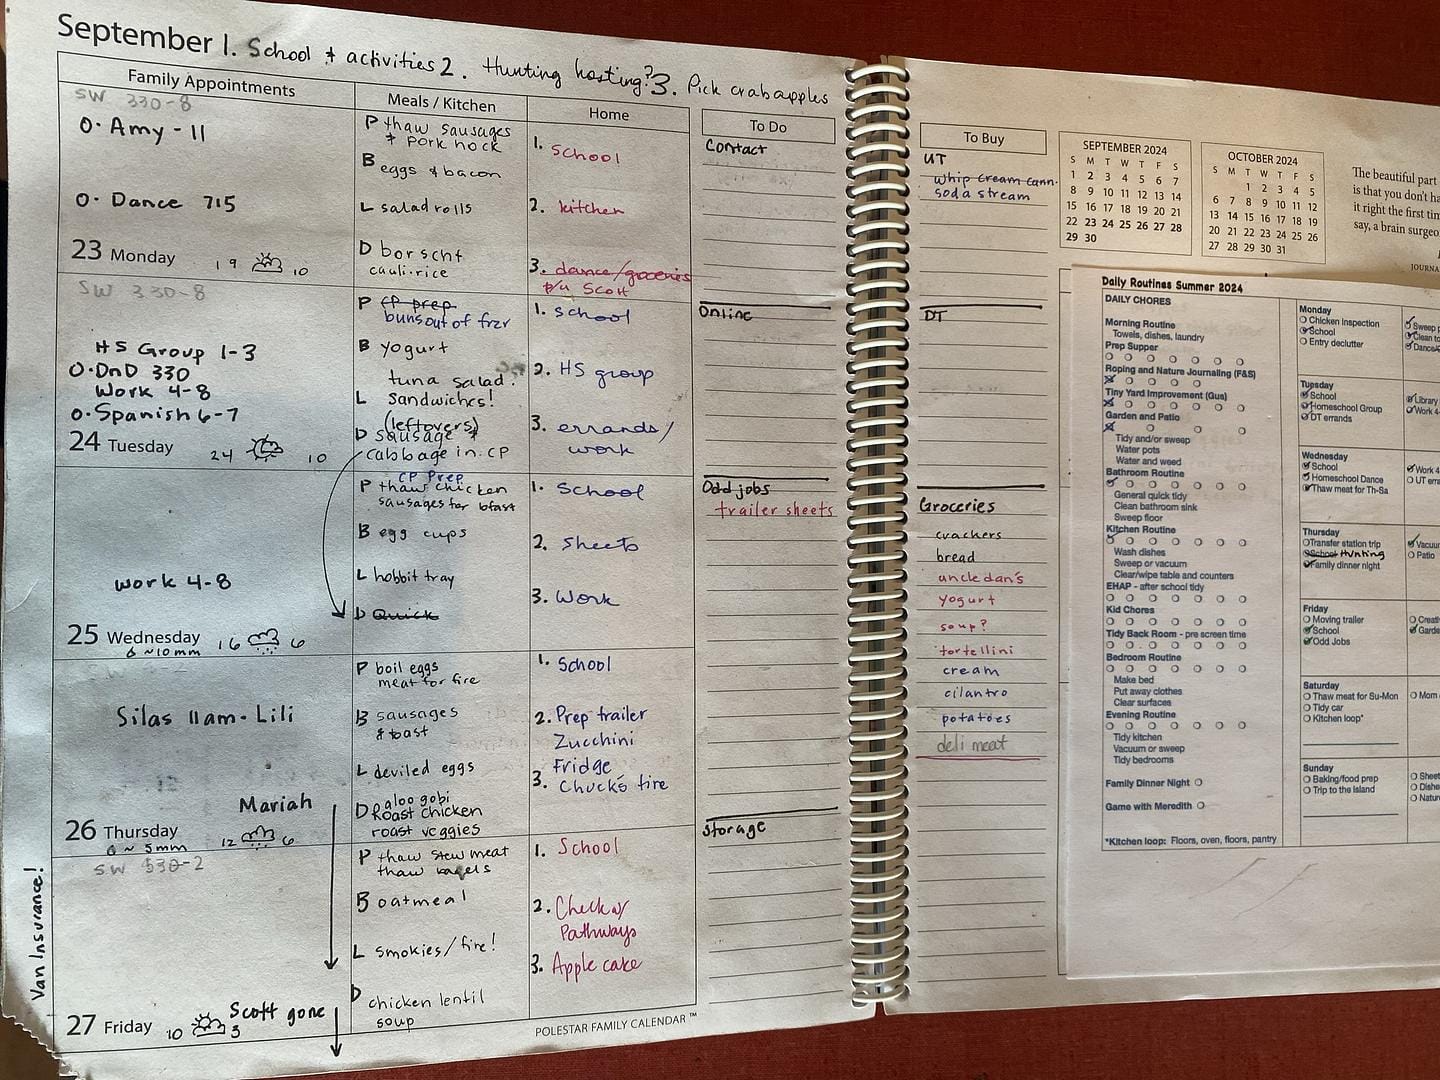 September 1. School & activities 2. Hunting hosting? 3. Pick crabapples
Family Appointments
Meals / Kitchen
Home
To Do
SW 330-8
O. Amy - 11
O. Dance 715
23 Monday 19 10
P thaw sausages
& pork hock
B eggs & bacon
L salad rolls
D borscht
cauli-rice
1. School
2. kitchen
3. dance/groceries
p/u Scott
SW 330-8
HS Group 1-3
O. DnD 330
Work 4-8
O. Spanish 6-7
24 Tuesday 24 10
P CP prep
buns out of frzr
B yogurt
tuna salad
L sandwiches!
(leftovers)
D sausage &
cabbage in CP
1. School
2. HS group
3. errands/
work
work 4-8
25 Wednesday 16 6
6 ~10mm
CP Prep
P thaw chicken
sausages for bfast
B egg cups
L hobbit tray
D Quick
1. School
2. Sheets
3. Work
Silas 11am - Lili
Mariah
26 Thursday 12 6
6 ~ 5mm
P boil eggs
meat for fire
B sausages
& toast
L deviled eggs
aloo gobi
D Roast chicken
roast veggies
1. School
2. Prep trailer
Zucchini
Fridge
3. Chuck's fire
SW 530-2
Scott gone
27 Friday 10 3
P thaw stew meat
thaw bagels
B oatmeal
L smokies/fire!
D chicken lentil
soup
1. School
2. Check w/
Pathways
3. Apple cake
Van Insurance!
POLESTAR FAMILY CALENDAR™
Contact
Online
Odd jobs
trailer sheets
Storage
To Buy
UT
whip cream cann.
soda stream
DT
Groceries
crackers
bread
uncle dan's
yogurt
soup?
tortellini
cream
cilantro
potatoes
deli meat
SEPTEMBER 2024
S M T W T F S
1 2 3 4 5 6 7
8 9 10 11 12 13 14
15 16 17 18 19 20 21
22 23 24 25 26 27 28
29 30
OCTOBER 2024
S M T W T F S
1 2 3 4 5
6 7 8 9 10 11 12
13 14 15 16 17 18 19
20 21 22 23 24 25 26
27 28 29 30 31
The beautiful part
is that you don't ha
it right the first tim
say, a brain surgeo
JOURNA
Daily Routines Summer 2024
DAILY CHORES
Morning Routine
Towels, dishes, laundry
Prep Supper
Roping and Nature Journaling (F&S)
Tiny Yard Improvement (Gus)
Garden and Patio
Tidy and/or sweep
Water pots
Water and weed
Bathroom Routine
General quick tidy
Clean bathroom sink
Sweep floor
Kitchen Routine
Wash dishes
Sweep or vacuum
Clear/wipe table and counters
EHAP - after school tidy
Kid Chores
Tidy Back Room - pre screen time
Bedroom Routine
Make bed
Put away clothes
Clear surfaces
Evening Routine
Tidy kitchen
Vacuum or sweep
Tidy bedrooms
Family Dinner Night
Game with Meredith
*Kitchen loop: Floors, oven, floors, pantry
Monday
Chicken Inspection
School
Entry declutter
Sweep p
Clean to
Dance/
Tuesday
School
Homeschool Group
DT errands
Library
Work 4-
Wednesday
School
Homeschool Dance
Thaw meat for Th-Sa
Work 4
UT erra
Thursday
Transfer station trip
School Hunting
Family dinner night
Vacuum
Patio
Friday
Moving trailer
School
Odd Jobs
Creati
Garde
Saturday
Thaw meat for Su-Mon
Tidy car
Kitchen loop*
Mom
Sunday
Baking/food prep
Trip to the Island
Sheet
Dishe
Natur